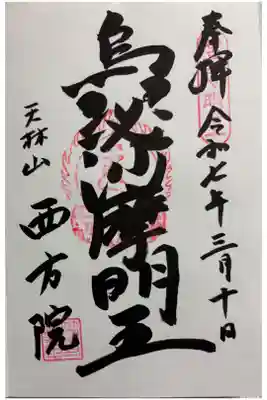 奉拝 令和七年三月十日
烏渋摩明王
天林山
西方院